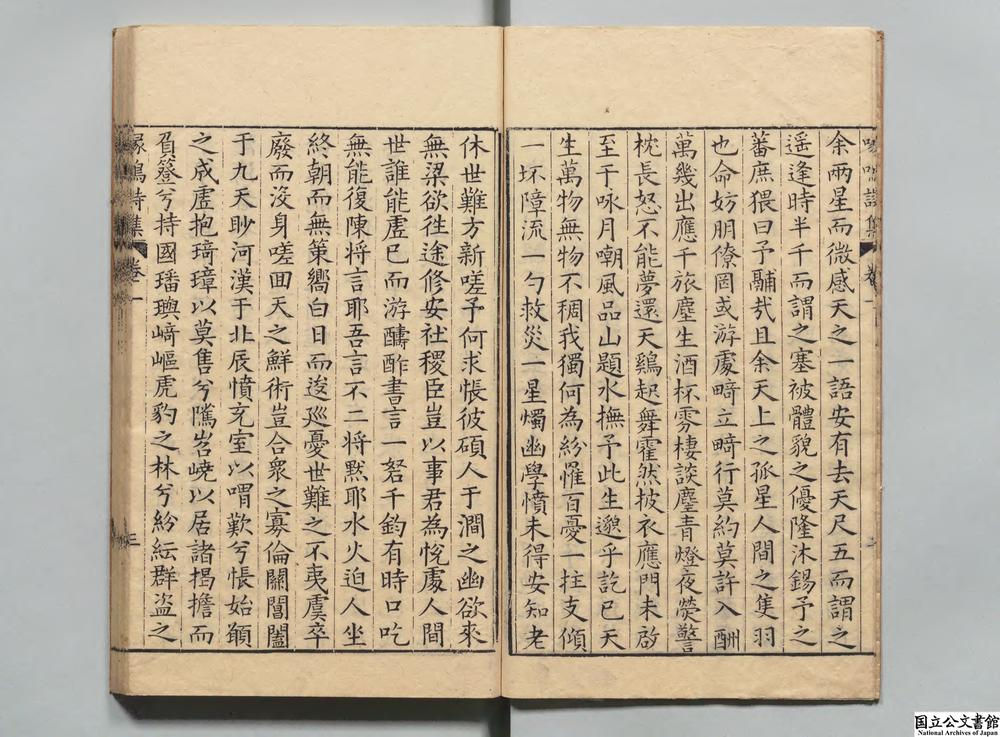 余兩星而微感天之一語安有去天尺五而謂之
遥逢時半千而謂之塞被體貌之優隆沐錫予之
蕃庶猥曰予黼㢤且余天上之孤星人間之隻羽
也命妨朋僚罔或游處畸立畸行莫約莫許入酬
萬幾出應千旅塵生酒杯雰棲談麈青燈夜熒警
枕長怒不能夢還天鷄起舞霍然披衣應門未啟
至于咏月嘲風品山題水撫予此生邈乎訖已天
生萬物無物不稠我獨何為紛罹百憂一拄支傾
一坏障流一勺救災一星燭幽學憤未得安知老
休世難方新嗟予何求悵彼碩人于澗之幽欲來
無梁欲徃途修安社稷臣豈以事君為悅處人間
世誰能虛已而游醻酢書言一弩千鈞有時口吃
無能復陳将言耶吾言不二将默耶水火迫人坐
終朝而無策嚮白日而逡廵憂世難之不夷虞卒
廢而沒身嗟囬天之鮮術豈合衆之寡倫關閶闔
于九天眇河漢于北辰憤充室以喟歎兮悵始顲
之成虛抱琦璋以莫售兮隲岧嶢以居諸揭擔而
負簦兮持國璠璵﨑嶇虎豹之林兮紛紜群盗之
緑鳩詩集 卷一 三
国立公文書館
National Archives of Japan